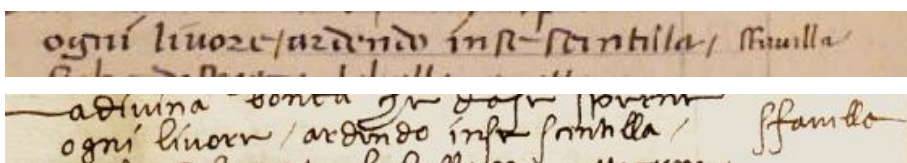 ogni liuore/ardendo in se scintilla/ sfauilla
adiuina bonta che dase sperne
ogni liuore / ardendo inse scintilla / sfauilla